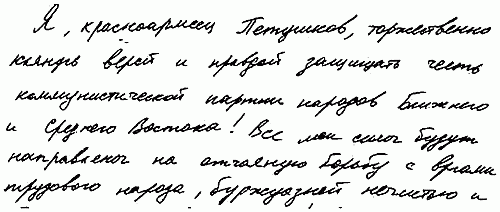 Я, красноармеец Петушков, торжественно
клянусь верой и правдой защищать честь
коммунистической партии народов Ближнего
и Среднего Востока! Все мои силы будут
направлены на отчаянную борьбу с врагами
трудового народа, буржуазной нечистью и